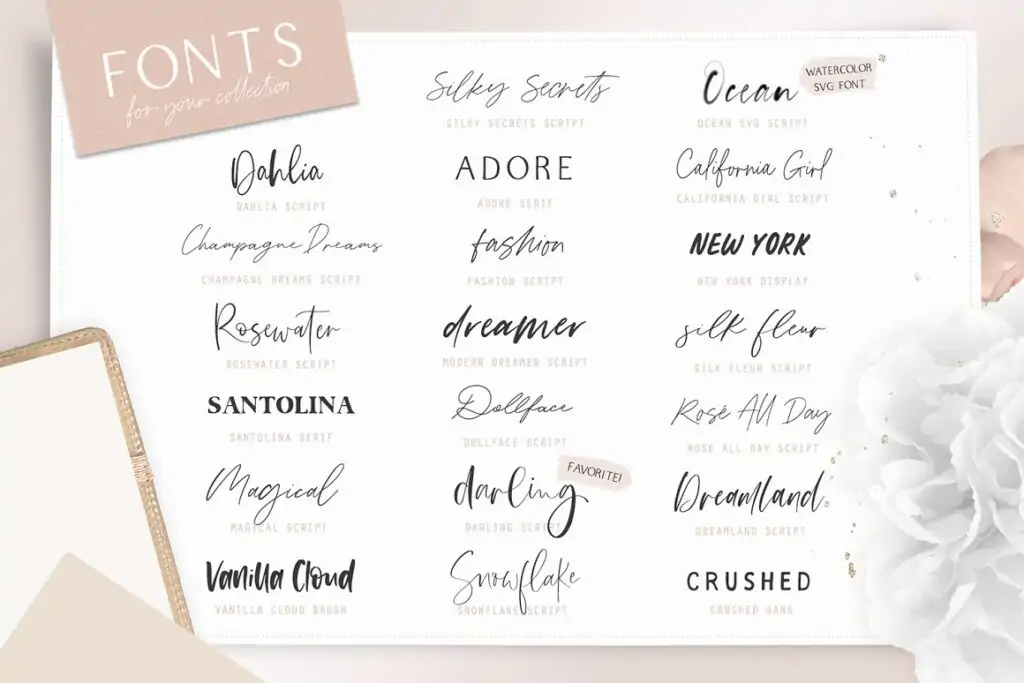 FONTS
for your collection
Silky Secrets
SILKY SECRETS SCRIPT
Ocean
WATERCOLOR
SVG FONT
OCEAN SVG SCRIPT
Dahlia
DAHLIA SCRIPT
ADORE
ADORE SERIF
California Girl
CALIFORNIA GIRL SCRIPT
Champagne Dreams
CHAMPAGNE DREAMS SCRIPT
fashion
FASHION SCRIPT
NEW YORK
NEW YORK DISPLAY
Rosewater
ROSEWATER SCRIPT
dreamer
MODERN DREAMER SCRIPT
silk fleur
SILK FLEUR SCRIPT
SANTOLINA
SANTOLINA SERIF
Dollface
DOLLFACE SCRIPT
Rosé All Day
ROSE ALL DAY SCRIPT
Magical
MAGICAL SCRIPT
darling
FAVORITE!
DARLING SCRIPT
Dreamland
DREAMLAND SCRIPT
Vanilla Cloud
VANILLA CLOUD BRUSH
Snowflake
SNOWFLAKE SCRIPT
CRUSHED
CRUSHED SANS